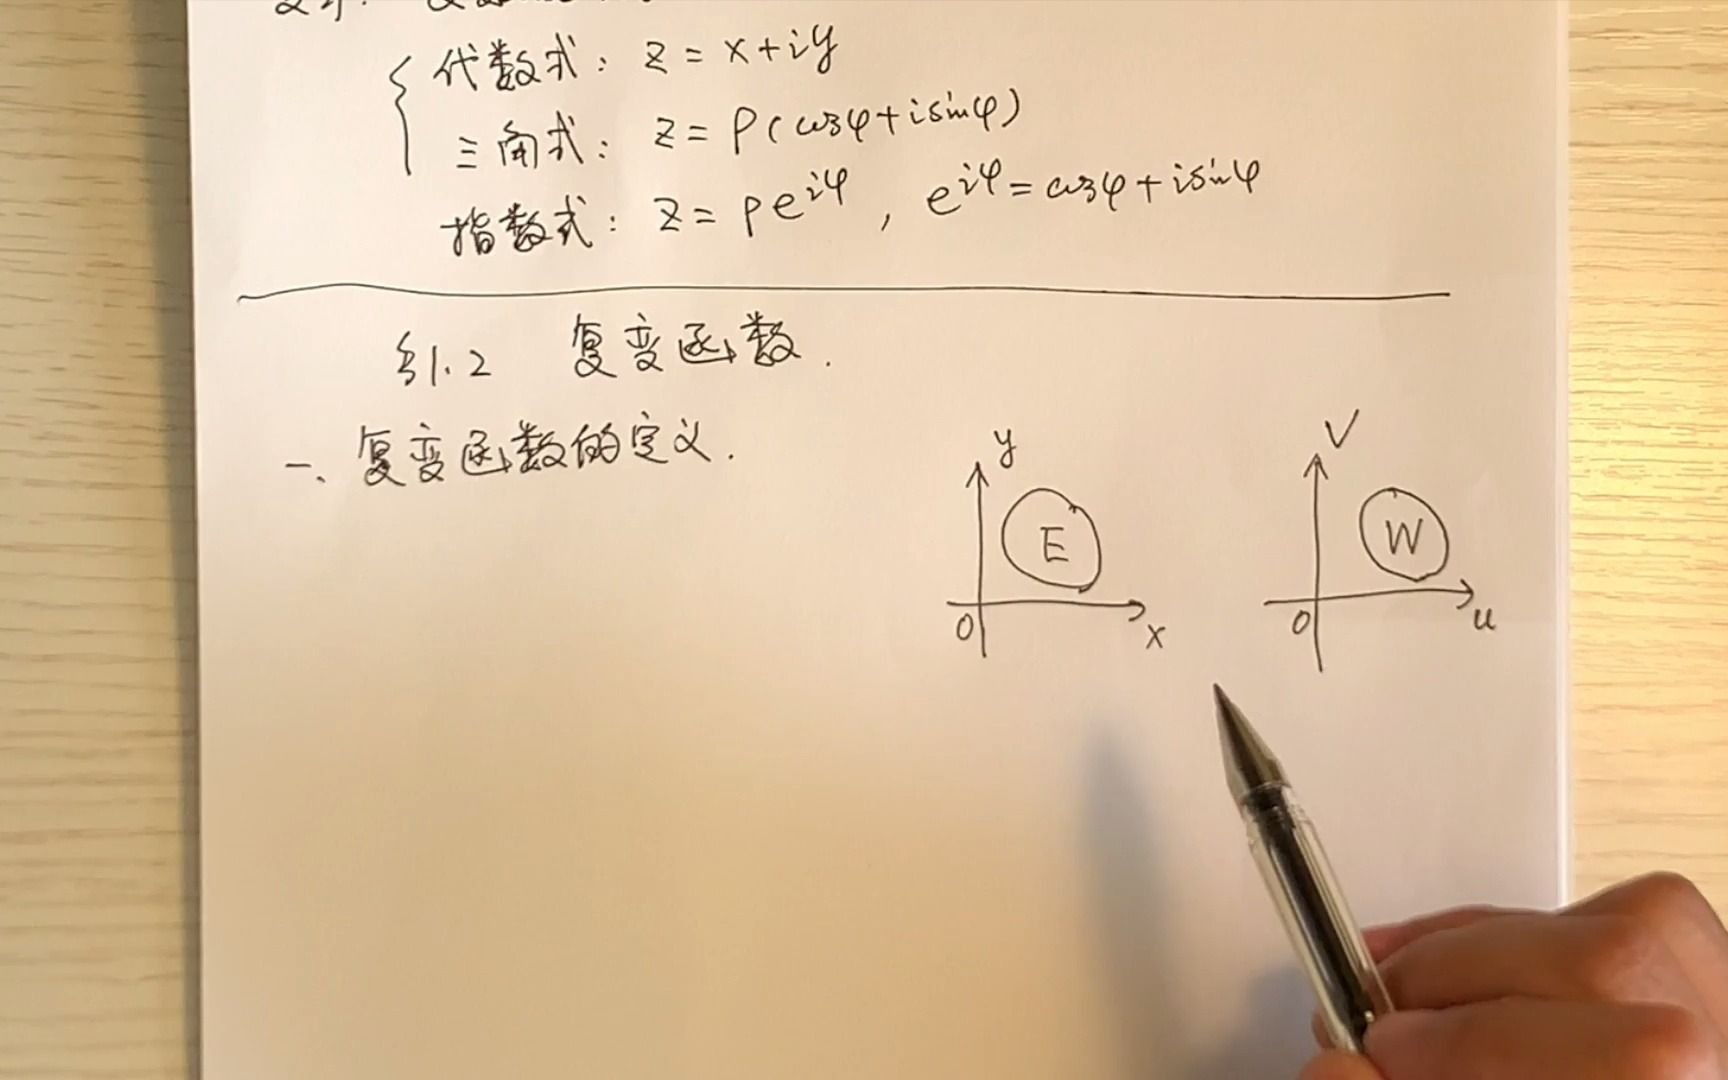 代数式: z = x+iy
三角式: z = ρ(cosφ+isinφ)
指数式: z = ρe^{iφ}, e^{iφ} = cosφ+isinφ
§1.2 复变函数.
一、复变函数的定义.
y V
E W
0 x 0 u